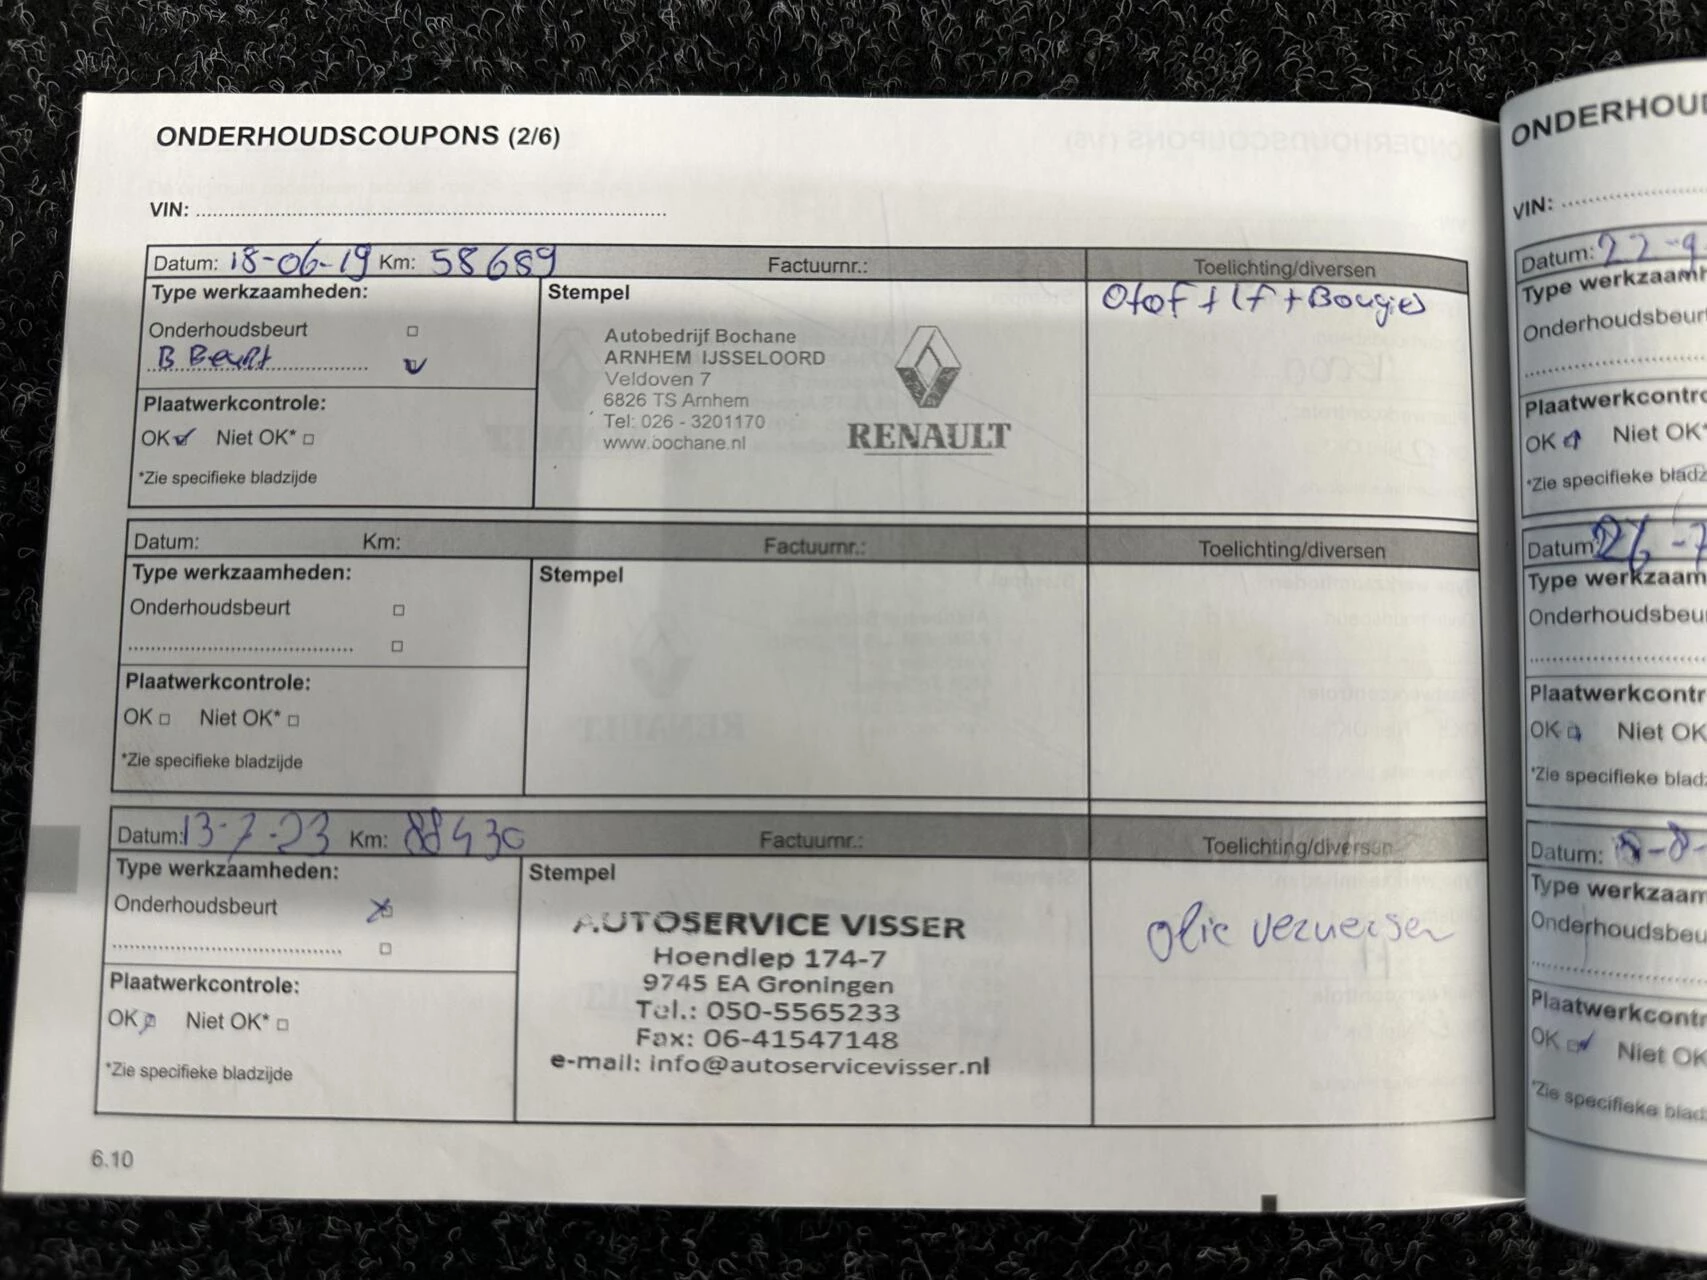 ONDERHOUDSCOUPONS (2/6)
VIN:
Datum: 18-06-19 Km: 58689 Factuurnr.: Toelichting/diversen
Type werkzaamheden: Stempel
Onderhoudsbeurt
B Beurt
Autobedrijf Bochane
ARNHEM IJSSELOORD
Veldoven 7
6826 TS Arnhem
Tel: 026 - 3201170
www.bochane.nl
RENAULT
O+oF + IF + Bougies
Plaatwerkcontrole:
OK Niet OK*
*Zie specifieke bladzijde
Datum: Km: Factuurnr.: Toelichting/diversen
Type werkzaamheden: Stempel
Onderhoudsbeurt
Plaatwerkcontrole:
OK Niet OK*
*Zie specifieke bladzijde
Datum: 13-7-23 Km: 88430 Factuurnr.: Toelichting/diversen
Type werkzaamheden: Stempel
Onderhoudsbeurt
AUTOSERVICE VISSER
Hoendiep 174-7
9745 EA Groningen
Tel.: 050-5565233
Fax: 06-41547148
e-mail: info@autoservicevisser.nl
olie verversen
Plaatwerkcontrole:
OK Niet OK*
*Zie specifieke bladzijde
6.10
ONDERHOUD
VIN:
Datum: 22-9
Type werkzaamh
Onderhoudsbeurt
Plaatwerkcontro
OK Niet OK*
*Zie specifieke bladz
Datum: 26-7
Type werkzaam
Onderhoudsbeu
Plaatwerkcontr
OK Niet OK
*Zie specifieke blad
Datum: -8-
Type werkzaam
Onderhoudsbeu
Plaatwerkcontr
OK Niet OK
*Zie specifieke blad